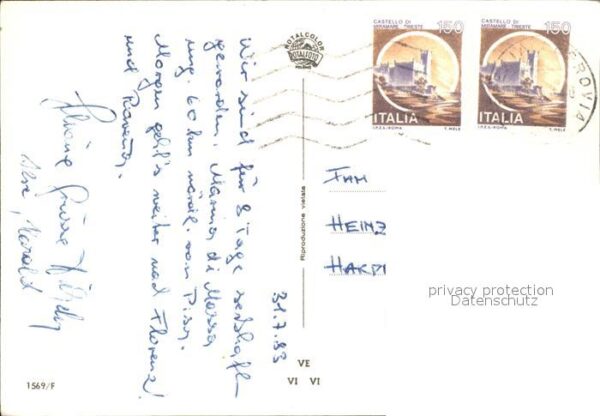 Wir sind für 8 Tage seßhaft
geworden. Marina di Massa
ung. 60 km nördl. von Pisa.
Morgen geht's weiter nach Florenz
und Ravenna.
Grüsse
Harald
31.7.83
1569/F
ROTALCOLOR
ROTALFOTO
Riproduzione vietata
CASTELLO DI
MIRAMARE TRIESTE
150
ITALIA
I.P.Z.S. ROMA
T. MELE
CASTELLO DI
MIRAMARE TRIESTE
150
ITALIA
I.P.Z.S. ROMA
T. MELE
HEINZ
privacy protection
Datenschutz
VE
VI VI